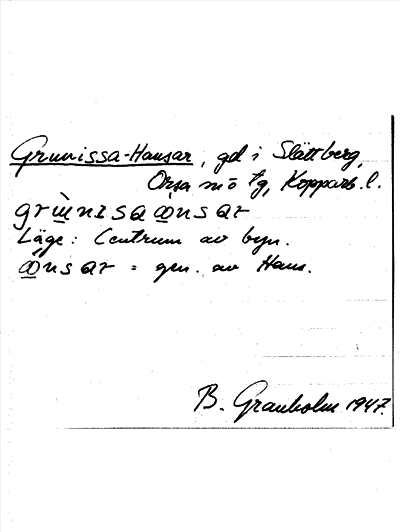 Grunissa-Hansar, gd i Slättberg,
Orsa sn o tg, Kopparb. l.
Läge: Centrum av byn.
= gen. av Hans.
B. Granholm 1947.